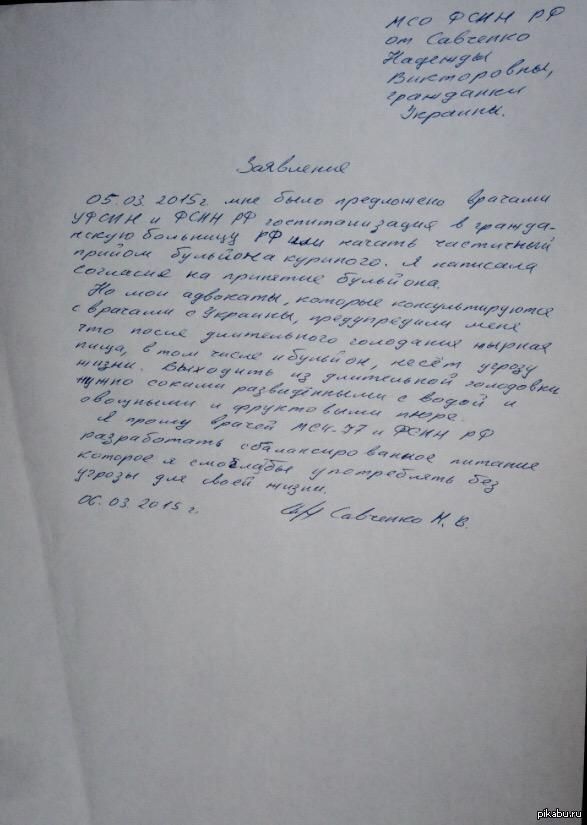 МСО ФСИН РФ
от Савченко
Надежды
Викторовны,
гражданки
Украины.
Заявление
05.03.2015г. мне было предложено врачами
УФСИН и ФСИН РФ госпитализация в гражда-
нскую больницу РФ или начать частичный
прийом бульйона куриного. Я написала
согласие на принятие бульйона.
Но мои адвокаты, которые консультируются
с врачами с Украины, предупредили меня
что после длительного голодания жырная
пища, в том числе и бульйон, несёт угрозу
жизни. Выходить из длительной голодовки
нужно соками разведёнными с водой и
овощными и фруктовыми пюре.
Я прошу врачей МСЧ-77 и ФСИН РФ
разработать сбалансированное питание
которое я смоглабы употреблять без
угрозы для своей жизни.
06.03.2015г. Савченко Н.В.
pikabu.ru